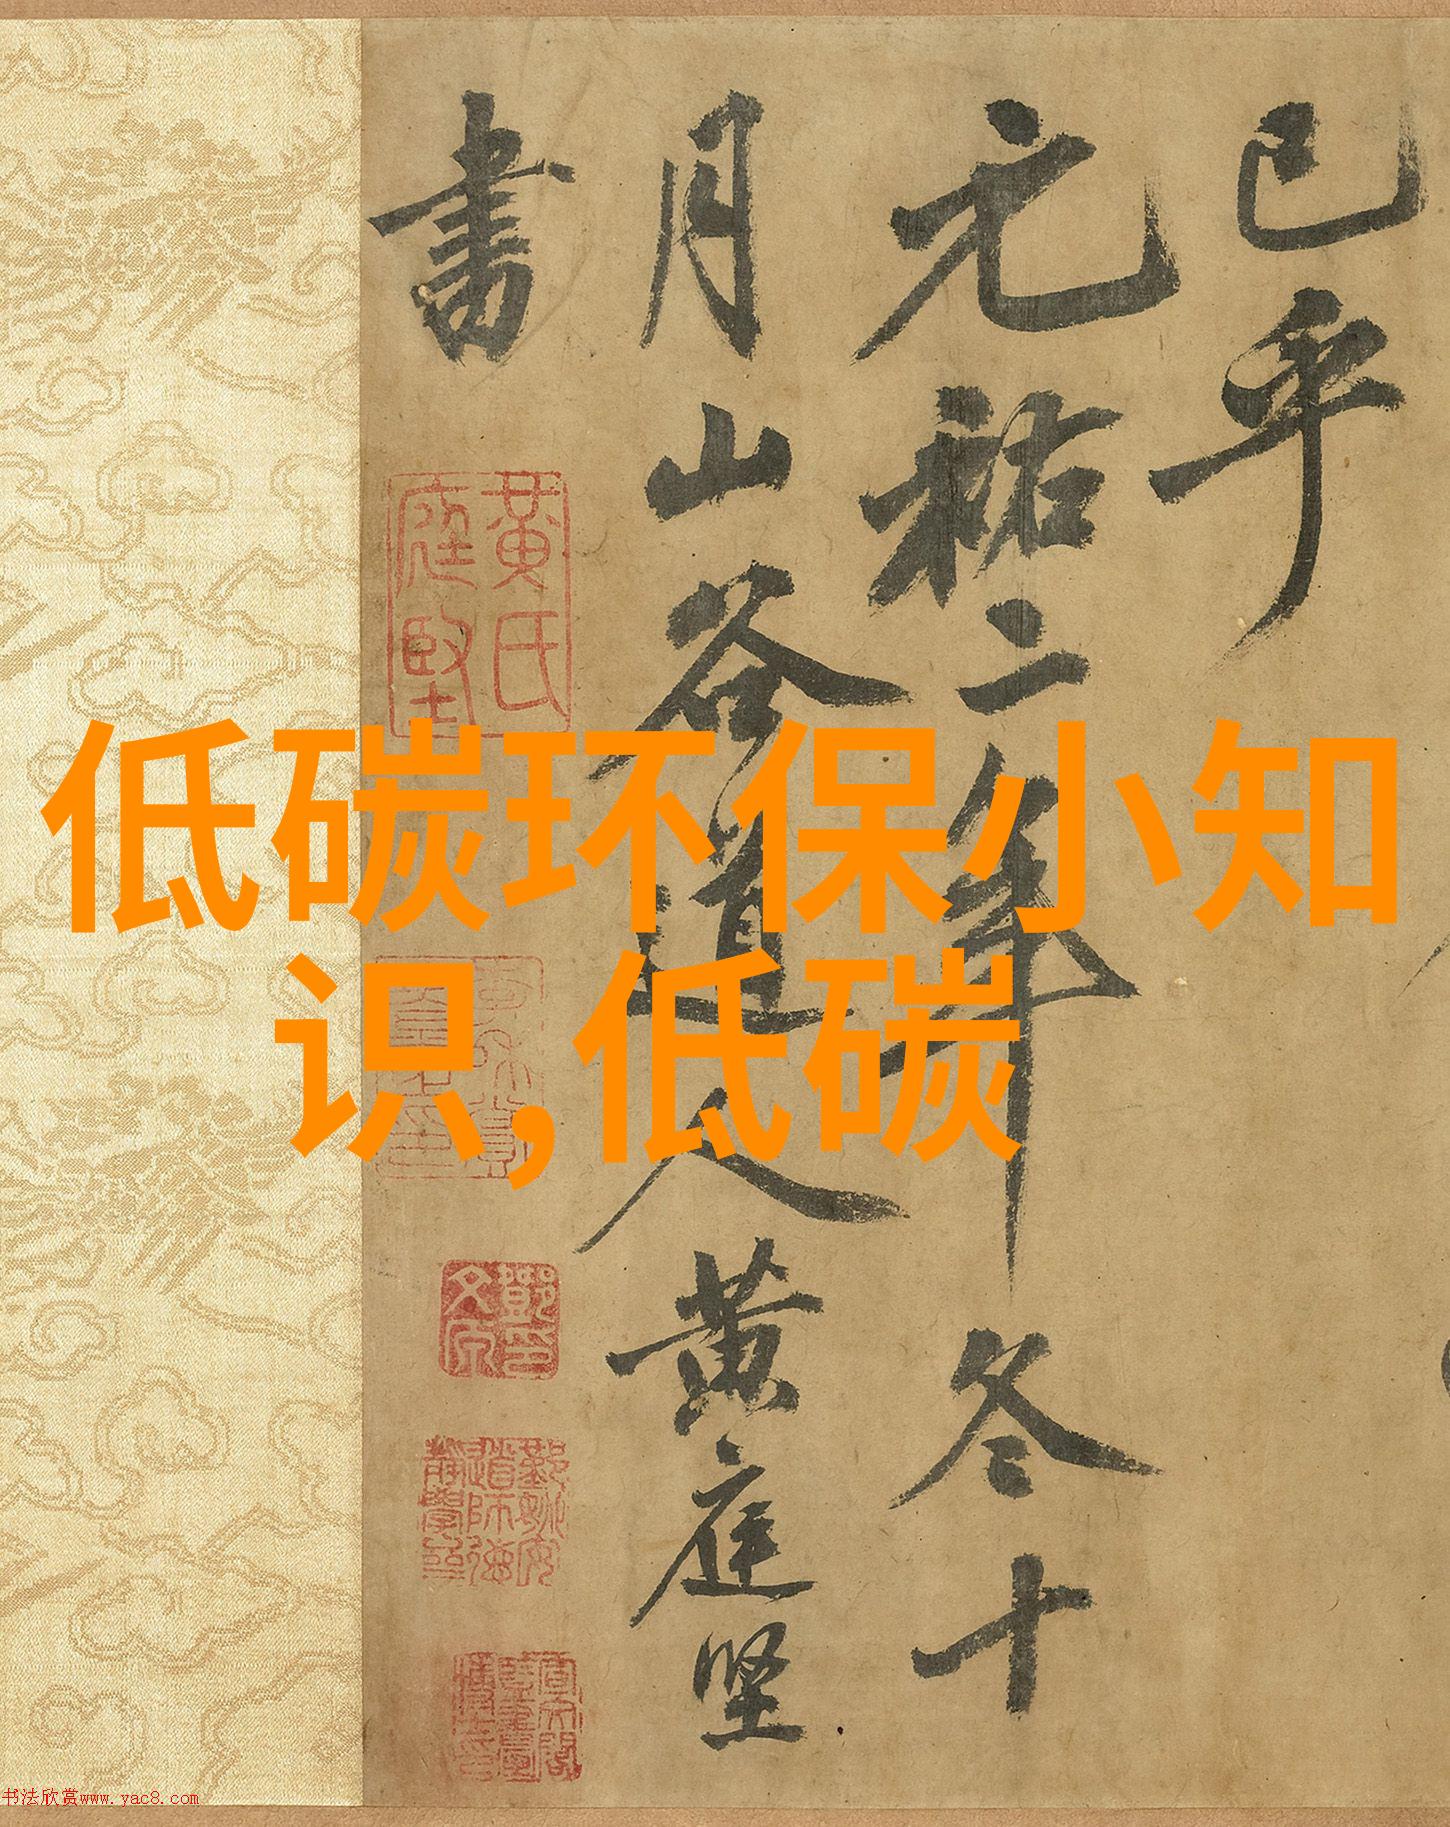 已乎
元祐二年冬十
月山谷道人黄庭坚
書
黄氏
庭堅
低碳环保小知
识,低碳
书法欣赏www.yac8.com